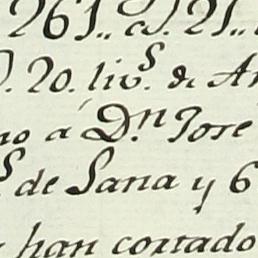 261.. d. 21..
). 20. liv.ˢ de Ar
no á D.ⁿ Jose
ˢ de Lana y 6
han cortado